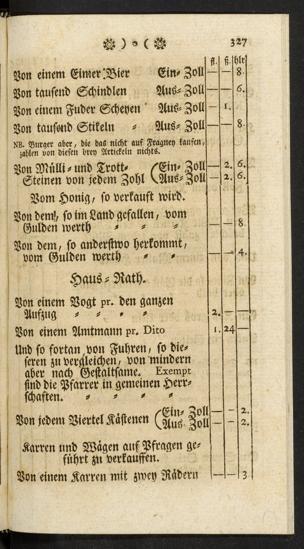 ❁ ) o ( ❁ 327
fl. ß. hlr
Von einem Eimer Bier Ein-Zoll — — 8.
Von tausend Schindlen Aus-Zoll — — 6.
Von einem Fuder Scheyen Aus-Zoll — 1. —
Von tausend Stikeln " Aus-Zoll — — 8.
NB. Burger aber, die das nicht auf Fragney kaufen,
zahlen von diesen drey Artickeln nichts.
Von Mülli- und Trott- (Ein-Zoll — 2. 6.
Steinen von jedem Zohl (Aus-Zoll — 2. 6.
Vom Honig, so verkauft wird.
Von dem, so im Land gefallen, vom
Gulden werth " " " — — 8
Von dem, so anderstwo herkommt,
vom Gulden werth " " — — 4.
Haus-Rath.
Von einem Vogt pr. den ganzen
Aufzug " " " " 2. — —
Von einem Amtmann pr. Dito 1. 24 —
Und so fortan von Fuhren, so die-
seren zu vergleichen, von mindern
aber nach Gestaltsame. Exempt
sind die Pfarrer in gemeinen Herr-
schaften. " " " "
Von jedem Viertel Kästenen (Ein-Zoll — — 2.
(Aus-Zoll — — 2.
Karren und Wägen auf Pfragen ge-
führt zu verkauffen.
Von einem Karren mit zwey Rädern — — 3